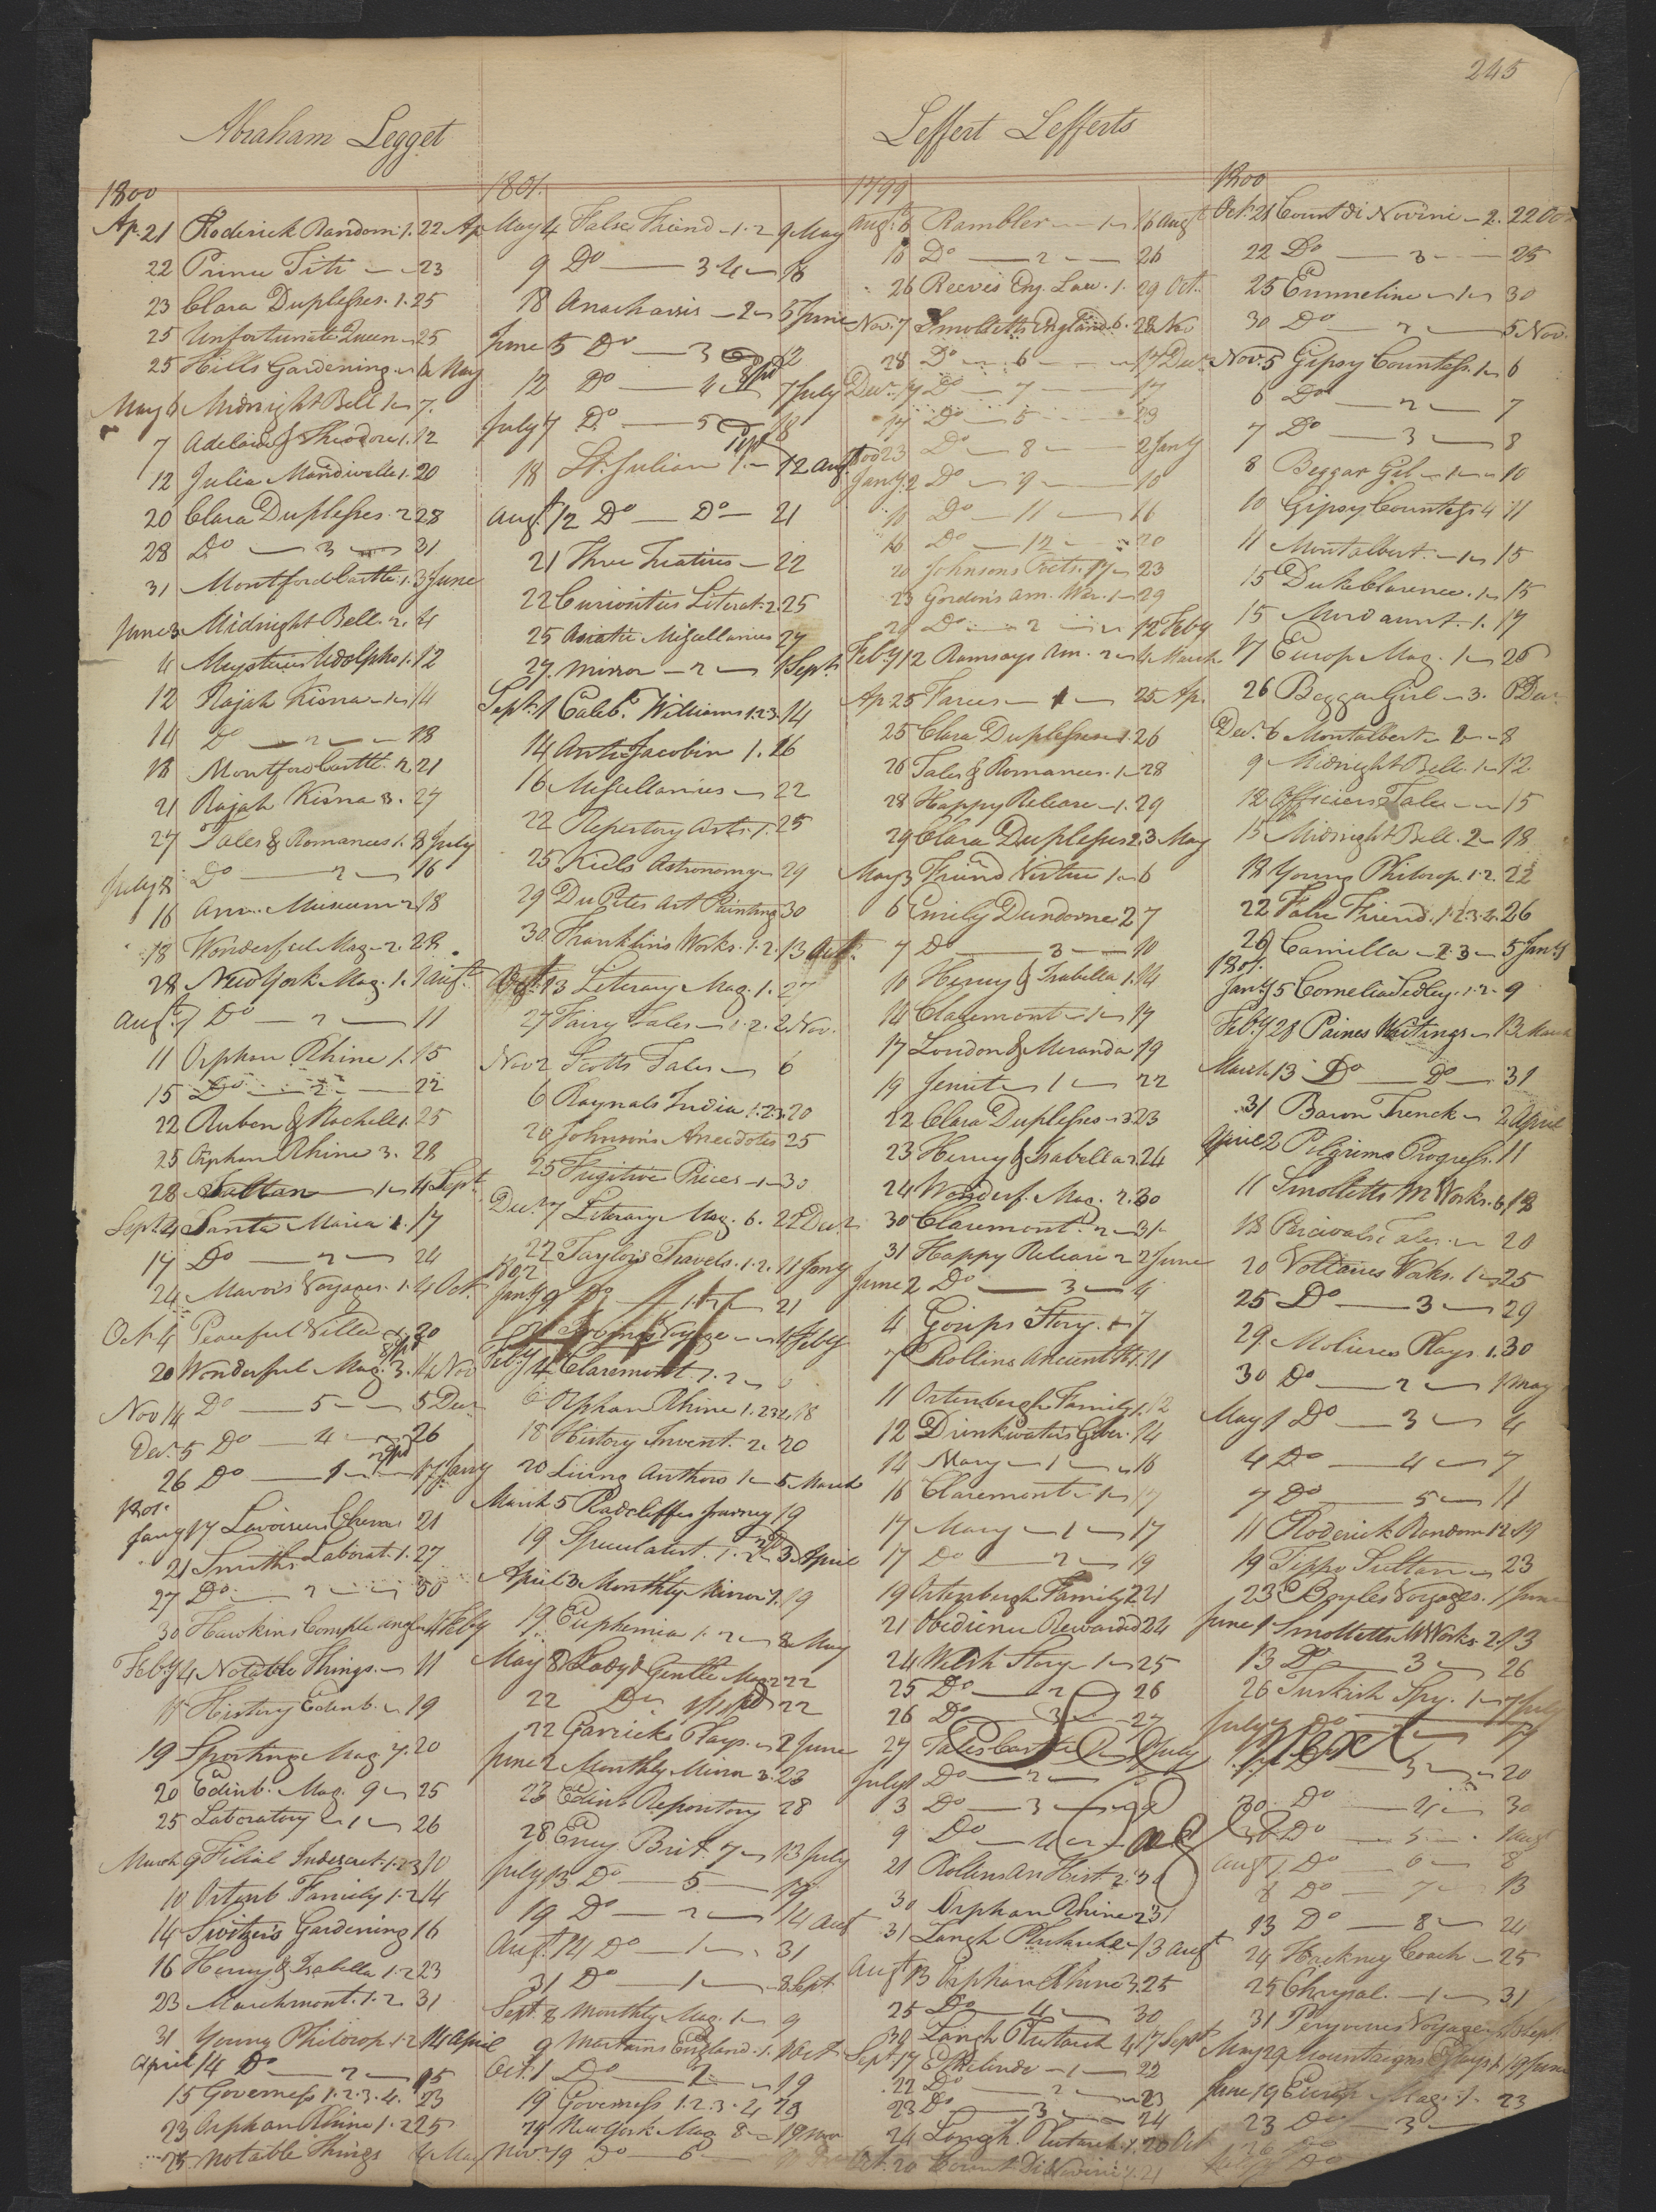 245
Abraham Legget
1800
Ap. 21 Roderick Random 1. 22 Ap
22 Prince Titi 23
23 Clara Duplesses. 1. 25
25 Unfortunate Queen 25
25 Hills Gardening 6 May
May 6 Midnight Bell 1 7.
7 Adelaide & Theodore 1. 12
12 Julia Mandiville 1. 20
20 Clara Duplesses. 2 28
28 Do 3 31
31 Montford Castle 1. 3 June
June 3 Midnight Bell. 2. 4
4 Mysteries Udolpho 1. 12
12 Rajah Kisna 1 14
14 Do 2 18
18 Montford Castle. 2. 21
21 Rajah Kisna 3. 27
27 Tales & Romances 1. 8 July
July 8 Do 2 16
16 Am. Museum 2 18
18 Wonderful Mag. 2. 28
28 New York Mag. 1. 7 Augt
Augt 7 Do 2 11
11 Orphan Rhine 1. 15
15 Do 2 22
22 Ruben & Rachel 1. 25
25 Orphan Rhine 3. 28
28 Sultan 1 4 Sept
Sept 4 Santa Maria 1. 17
17 Do 2 24
24 Mavors Voyages. 1. 4 Oct.
Oct 4 Peaceful Villa 20
20 Wonderful Mag. 3. 14 Nov
Nov 14 Do 5 5 Decr
Decr. 5 Do 4 26
26 Do 1 17 Jany
1801
Jany 17 Lavoisiers Chem 21
21 Smiths Laborat. 1. 27
27 Do 2 30
30 Hawkins Comple angler 4 Feby
Feby 4 Notable Things. 11
11 History Edinb. 19
19 Sporting Mag. 7. 20
20 Edinb. Mag. 9 25
25 Laboratory 1 26
March 9 Filial Indiscret. 1.2.3 10
10 Ortenb Family 1.2 14
14 Switzer's Gardening 16
16 Henry & Isabella 1.2 23
23 Marchmont. 1.2. 31
31 Young Philosop. 1.2 14 April
April 14 Do 2 15
15 Governess 1.2.3.4. 23
23 Orphan Rhine 1.2 25
25 Notable Things 4 May
1801.
May 4 False Friend 1.2 9 May
9 Do 3 4 18
18 Anacharsis 2 5 June
June 5 Do 3 12
12 Do 4 7 July
July 7 Do 5 18
18 St. Julian 1. 12 Augt
Augt 12 Do Do 21
21 Three Treatises 22
22 Curiosities Literat. 2. 25
25 Asiatic Miscellanies 27
27. Mirror 2 1 Sept.
Sept. 1 Caleb Williams 1.2.3. 14
14 Anti Jacobin 1. 16
16 Miscellanies 22
22 Repertory Arts. 1. 25
25 Kiels Astronomy 29
29 Du Piles Art Painting 30
30. Franklin's Works. 1.2. 13 Oct.
Oct. 13 Literary Mag. 1. 27
27 Fairy Tales 1.2. 2 Nov.
Nov 2 Scotts Tales 6
6 Raynals India 1.2.3. 20
20 Johnson's Anecdotes 25
25 Fugitive Pieces 1 30
Decr 7 Literary Mag. 6. 22 Decr
22 Taylors Travels. 1.2. 11 Jany
1802
Jany 9 Do 21
Voyage 4 Feby
Feby 4 Claremont. 1. 2 6
6 Orphan Rhine 1.2.3.4. 18
18 History Invent. 2. 20
20 Living Authors 1 5 March
March 5 Radcliffes Journey 19
19 Speculatist. 1. 3 April
April 3 Monthly Mirror 1. 19
19. Euphemia 1. 2 8 May
May 8 Lady & Gentle Mag 2 22
22 Do 22
22 Garrick's Plays. 2 June
June 2 Monthly Mirror 3. 23
23 Edinb Repository 28
28 Ency. Brit. 7 13 July
July 13 Do 5 19
19 Do 2 14 Augt
Augt. 14 Do 1 31
31 Do 1 8 Sept
Sept. 8 Monthly Mag. 1 9
9 Martins England. 1. 1 Oct
Oct. 1 Do 2 19
19 Governess 1.2.3.4 28
29 New York Mag 8 19 Nov
Nov. 19 Do 6
Leffert Lefferts
1799
Augt. 6 Rambler 1 16 Augt
16 Do 2 26
26 Reeves Eng. Law. 1. 29 Oct.
Nov. 7 Smolletts England 6. 28 Nov
28 Do 6 14 Decr
Decr. 14 Do 7 17
17 Do 5 23
23 Do 8 2 Jany
Jany. 2 Do 9 10
10 Do 11 16
16 Do 12 20
20 Johnsons Poets. 17 23
23 Gordon's Am. War. 1 29
29 Do 2 12 Feby
Feby 12 Ramsays Am. 2 4 March
Ap 25 Farces 1 25 Ap.
25 Clara Duplesses 1. 26
26 Tales & Romances. 1 28
28 Happy Release 1. 29
29 Clara Duplesses 2. 3 May
May 3 Friend Virtue 1 6
6 Emily Dundorne 2 7
7 Do 3 10
10 Henry & Isabella 1. 14
14 Claremont 1 17
17 London & Miranda 19
19 Jesuit 1 22
22 Clara Duplesses 3 23
23 Henry & Isabella 2. 24
24 Wonderf. Mag. 2. 30
30 Claremont. 2 31
31 Happy Release 2 2 June
June 2 Do 3 4
4 Gosips Story. 7
7 Rollins Ancient Ht. 1. 11
11 Ortenbergh Family 1. 12
12 Drinkwaters Giber. 14
14 Mary 1 16
16 Claremont 1 17
17 Mary 1 17
17 Do 2 19
19 Ortenburgh Family 2. 21
21 Obedience Rewarded 24
24 Welsh Story 1 25
25 Do 2 26
26 Do 3 27
27 Tales Castle 1 July
July 1 Do 2
3 Do 3 9
9 Do 4
21 Rollins An Hist. 2. 30
30 Orphan Rhine 2 31
31 Langh Plutarch 13 Augt
Augt 13 Orphan Rhine 3. 25
25 Do 4 30
30 Langh Plutarch 4 17 Sept
Sept. 17 Ethelinde 1 22
22 Do 2 23
23 Do 3 24
24 Langh. Plutarch. 1. 20 Oct
Oct. 20 Count Di Novini 1. 21
1800
Oct. 21 Count di Novini 2. 22 Oct
22 Do 3 25
25 Emmeline 1 30
30 Do 2 5 Nov.
Nov. 5 Gipsy Countess. 1 6
6 Do 2 7
7 Do 3 8
8 Beggar Girl 1 10
10 Gipsy Countess 4 11
11 Montalbert. 1 15
15 Duke Clarence. 1 15
15 Mordaunt. 1. 17
17 Europ. Mag. 1 26
26 Beggar Girl 3. 6 Decr.
Decr. 6 Montalbert 2 8
9 Midnight Bell. 1 12.
12 Officers Tales 15
15 Midnight Bell. 2 18
18 Young Philosop. 1.2. 22
22 False Friend. 1.2.3.4. 26
26 Camilla 2.3 5 Jany
1801.
Jany 5 Cornelia Sedley. 1.2. 9
Feby 28 Paines Writings 13 March
March 13 Do Do 31
31 Baron Trenck 2 April
April 2 Pilgrims Progress. 11
11 Smolletts M Works. 6. 18
18 Percivals Tales 20
20 Voltaires Works. 1 25
25 Do 3 29
29. Molieres Plays. 1. 30
30 Do 2 1 May
May 1 Do 3 4
4 Do 4 7
7 Do 5 11
11 Roderick Random 1.2. 19
19 Tippo Sultan 23
23 Boyles Voyages. 1 June
June 1 Smolletts M Works. 2. 13
13 Do 3 26
26 Turkish Spy. 1 7 July
July 7 Do 17
17 Do 3 20
20. Do 4 30
30 Do 5 1 Augt
Augt 1 Do 6 8
8 Do 7 13
13 Do 8 24
24 Hackney Coach 25
25 Chrysal. 1 31
31 Perouses Voyage Sept.
May 29 Mountaigns Essays 1. 19 June
June 19 Europ Mag. 1. 23
23 Do 3
26 Do
Next
Page